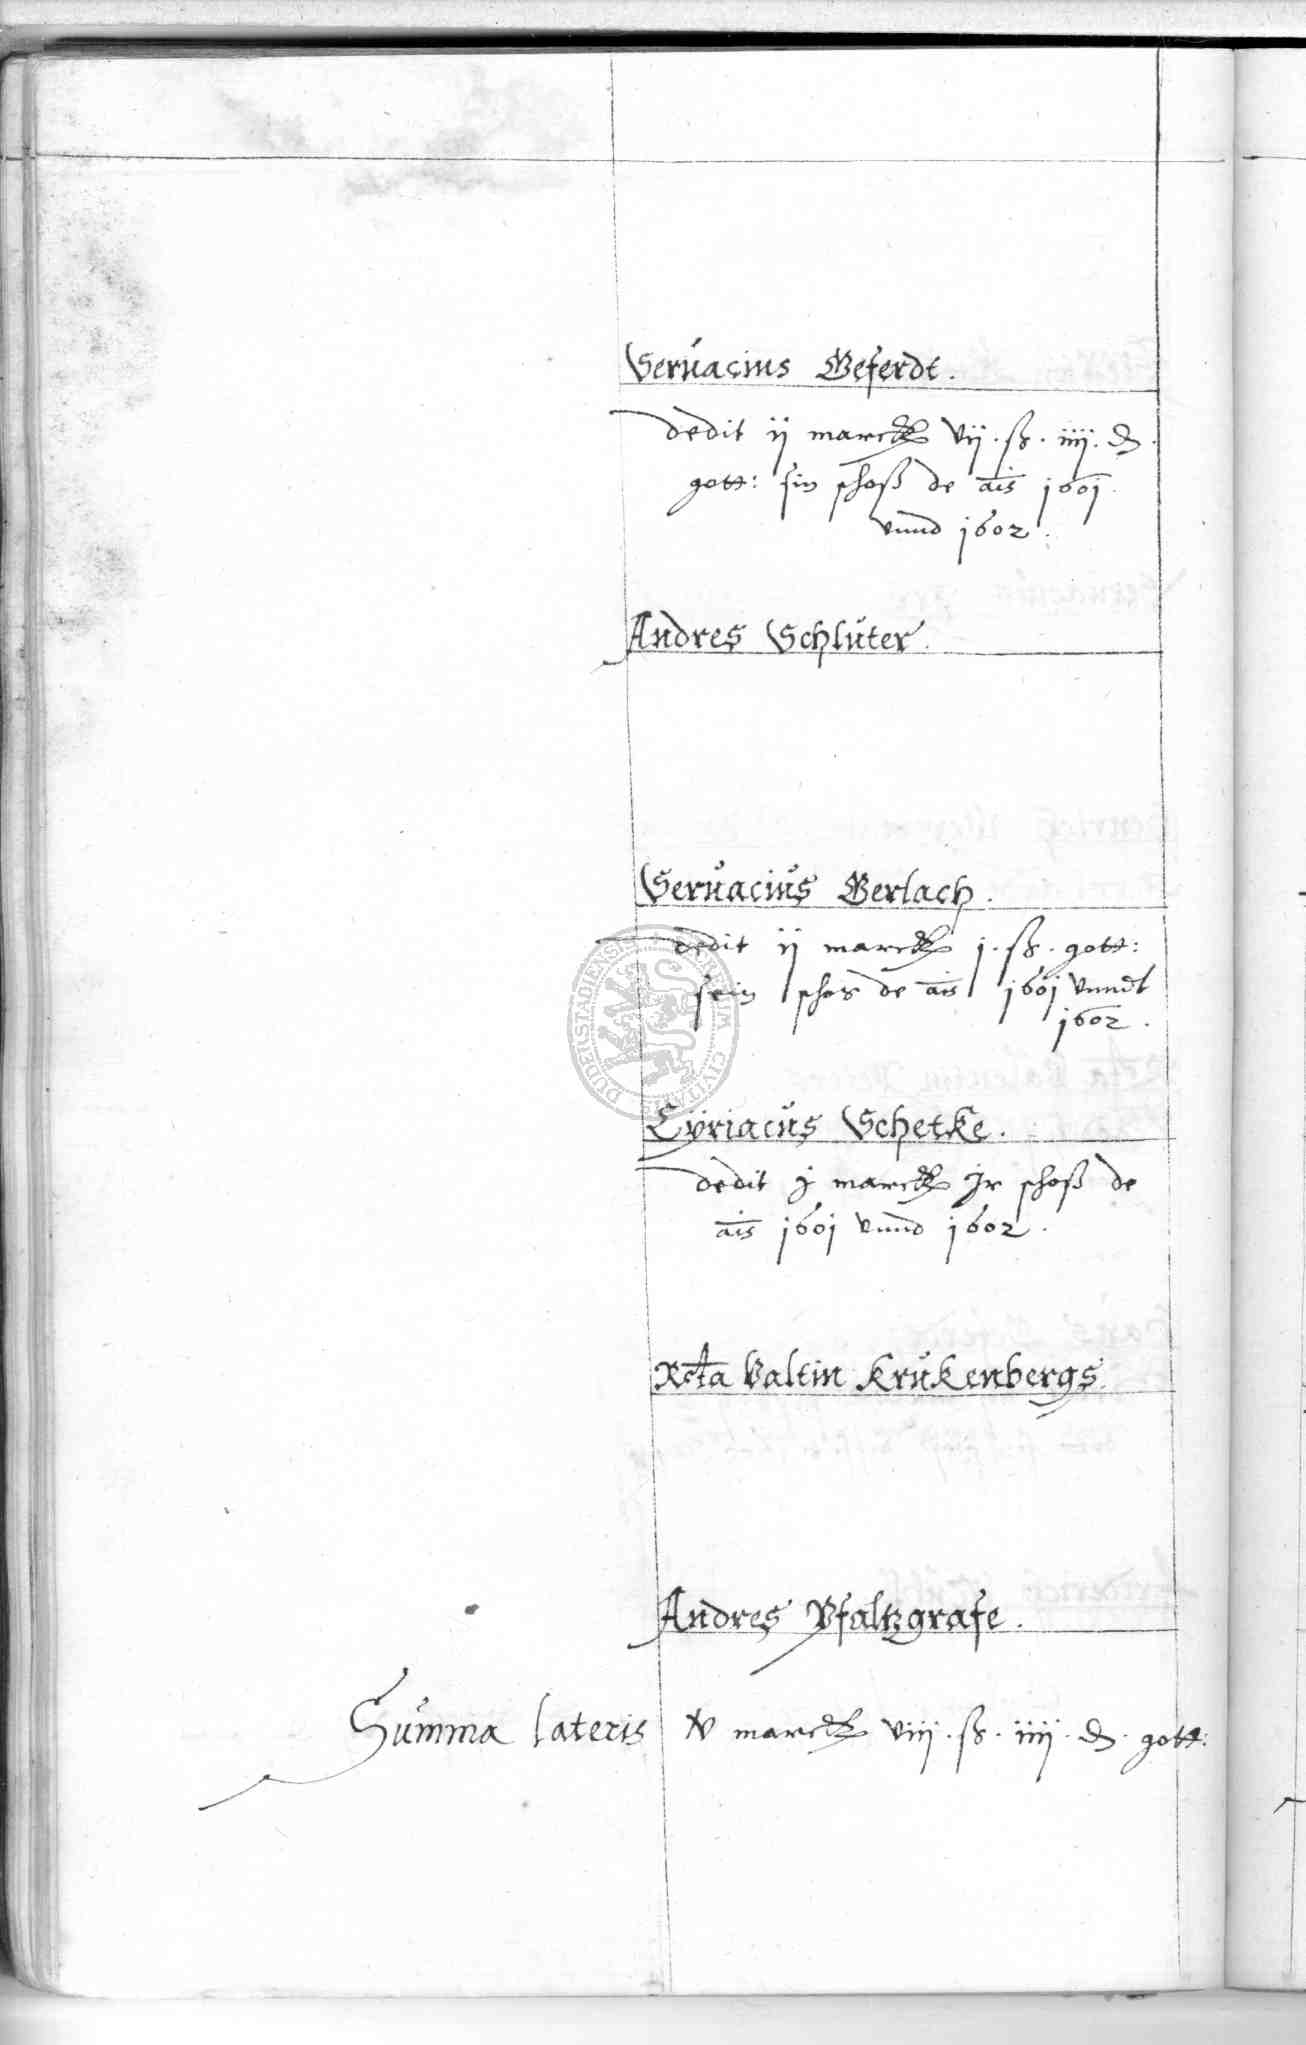 Seruacius Geferdt.
dedit ij marck vij. ß. iiij. d.
gott: sin schoß de ais 1601
vnnd 1602.
Andres Schluter.
Seruacius Gerlach.
dedit ij marck j. ß. gott:
sein schos de ais 1601 vnndt
1602.
Cyriacus Schetke.
dedit j marck Jr schoß de
ais 1601 vnnd 1602.
Rcta Valtin Krukenbergs.
Andres Pfaltzgrafe.
Summa lateris v marck viij. ß. iiij. d. gott:
DUDERSTADIENSIS CIVITATIS